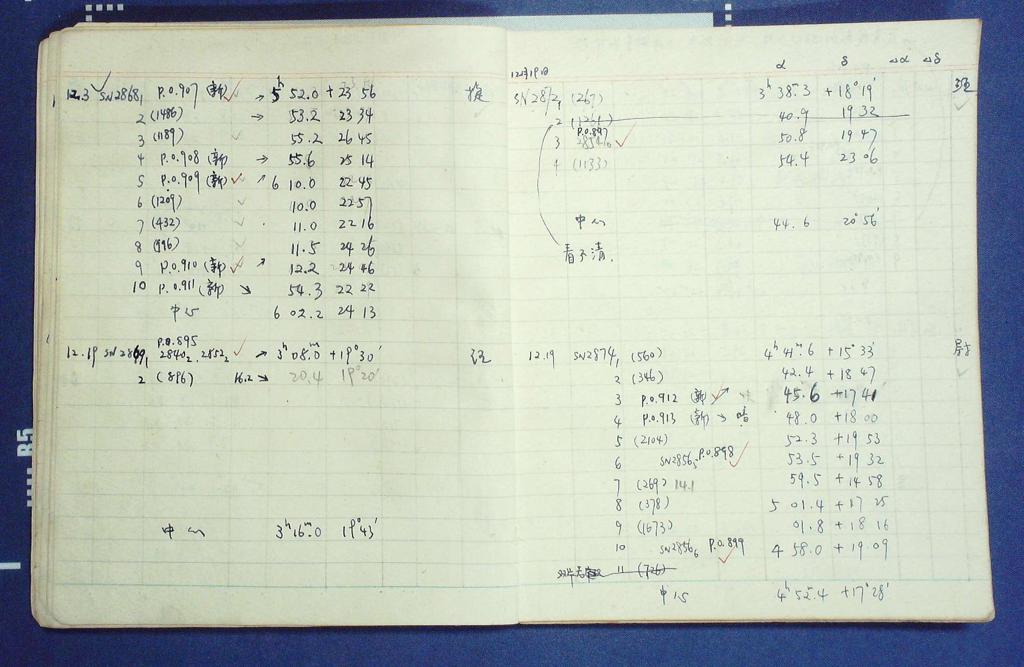 12.3 SN2868₁ P.O.907 (新) → 5ʰ 52.0 + 23° 56
2 (1486) → 53.2 23 34
3 (1189) 55.2 26 45
4 P.O.908 (新) → 55.6 25 14
5 P.O.909 (新) ↗ 6 10.0 22 45
6 (1209) 10.0 22 57
7 (432) 11.0 22 16
8 (996) 11.5 24 26
9 P.O.910 (新) ↗ 12.2 24 46
10 P.O.911 (新) ↘ 54.3 22 22
中心 6 02.2 24 13
P.O.895
12.19 SN2869₁ 2840₂, 2852₂ → 3ʰ 08.ᵐ0 +19° 30′
2 (896) 16.2 ↘ 20.4 19° 20′
中心 3ʰ 16.ᵐ0 19° 43′
α δ Δα Δδ
12月19日
(267) 3ʰ 38.ᵐ3 + 18° 19′
2 (1261) 40.9 19 32
P.O.897
3 50.8 19 47
4 (1133) 54.4 23 06
中心 44.6 20° 56′
看不清.
12.19 SN2874₁ (560) 4ʰ 41.ᵐ6 + 15° 33′
2 (346) 42.4 + 18 47
3 P.O.912 (新) ↗ 45.6 +17 41
4 P.O.913 (新) → 暗 48.0 +18 00
5 (2104) 52.3 +19 53
6 SN2856₅ P.O.898 53.5 +19 32
7 (269) 14.1 59.5 +14 58
8 (378) 5 01.4 +17 25
9 (1673) 01.8 +18 16
10 SN2856₆ P.O.899 4 58.0 +19 09
11 (726)
中心 4ʰ 52.ᵐ4 +17° 28′